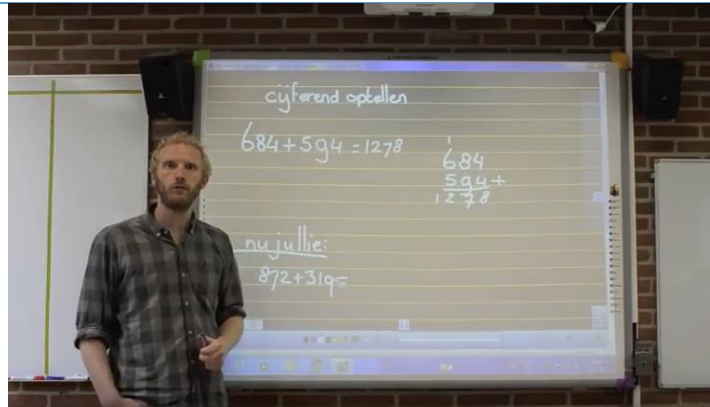 cijferend optellen
684+594=1278
1
684
594+
1278
nu jullie:
872+319=